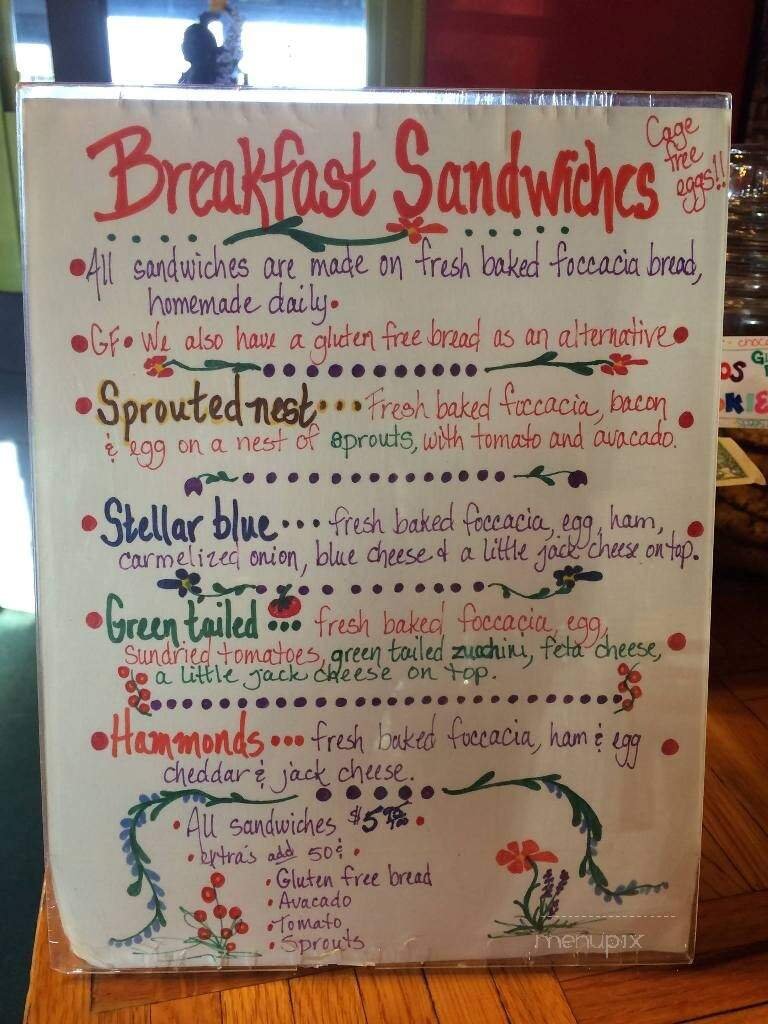 Breakfast Sandwiches
Cage
free
eggs!!
•All sandwiches are made on fresh baked foccacia bread,
homemade daily•
•GF• We also have a gluten free bread as an alternative•
•Sprouted nest••• Fresh baked foccacia, bacon•
& egg on a nest of sprouts, with tomato and avacado.
•Stellar blue••• fresh baked foccacia, egg, ham,•
carmelized onion, blue cheese & a little jack cheese on top.
•Green tailed••• fresh baked foccacia, egg,
sundried tomatoes, green tailed zucchini, feta cheese,•
a little jack cheese on top.
•Hammonds••• fresh baked foccacia, ham & egg•
cheddar & jack cheese.
•All sandwiches $5•
•extra's add 50¢•
•Gluten free bread
•Avacado
•Tomato
•Sprouts
menupix